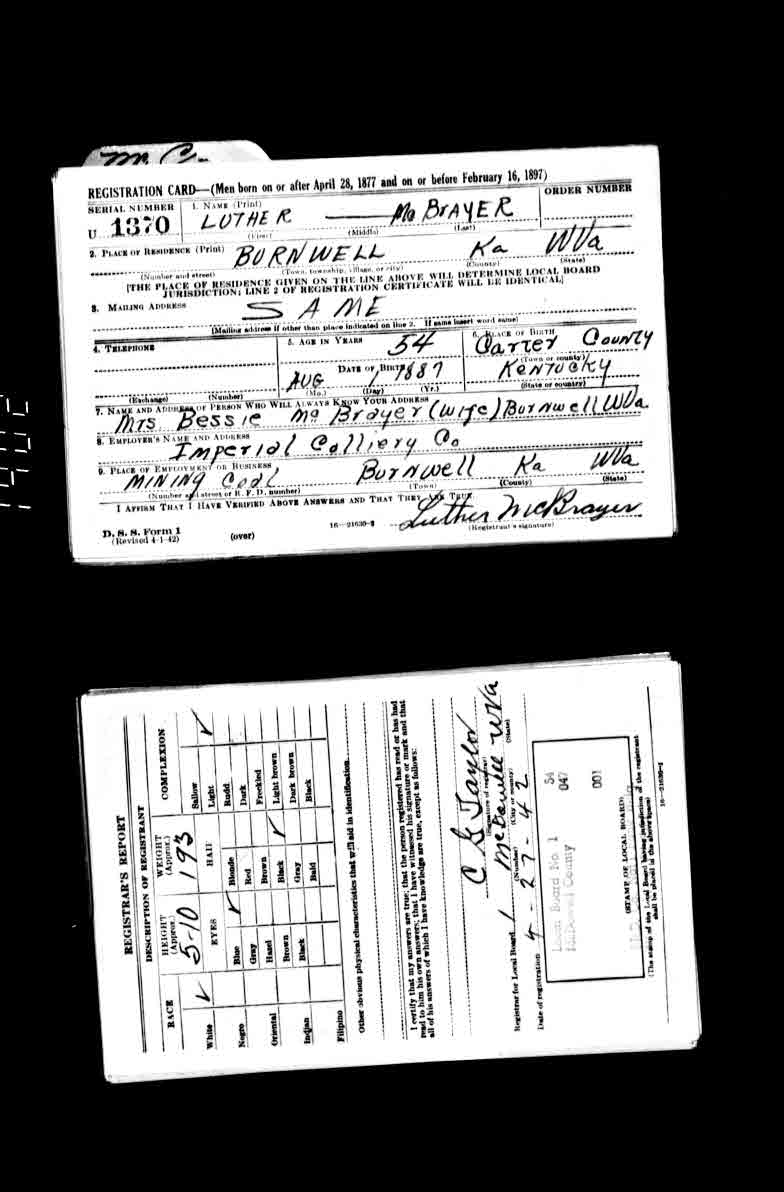 Mc C-
REGISTRATION CARD—(Men born on or after April 28, 1877 and on or before February 16, 1897)
SERIAL NUMBER 1. NAME (Print) ORDER NUMBER
U 1370 LUTHER —— Mc BrAYER
(First) (Middle) (Last)
2. PLACE OF RESIDENCE (Print) BURNWELL Ka WVa
(Number and street) (Town, township, village, or city) (County) (State)
[THE PLACE OF RESIDENCE GIVEN ON THE LINE ABOVE WILL DETERMINE LOCAL BOARD
JURISDICTION; LINE 2 OF REGISTRATION CERTIFICATE WILL BE IDENTICAL]
3. MAILING ADDRESS SAME
[Mailing address if other than place indicated on line 2. If same insert word same]
4. TELEPHONE 5. AGE IN YEARS 54 6. PLACE OF BIRTH
Carter County
DATE OF BIRTH (Town or county)
AUG 1 1887 KENTUCKY
(Exchange) (Number) (Mo.) (Day) (Yr.) (State or country)
7. NAME AND ADDRESS OF PERSON WHO WILL ALWAYS KNOW YOUR ADDRESS
Mrs Bessie Mc Brayer (wife) Burnwell WVa
8. EMPLOYER'S NAME AND ADDRESS
Imperial Colliery Co
9. PLACE OF EMPLOYMENT OR BUSINESS
MINING Coal Burnwell Ka WVa
(Number and street or R. F. D. number) (Town) (County) (State)
I AFFIRM THAT I HAVE VERIFIED ABOVE ANSWERS AND THAT THEY ARE TRUE.
Luther McBrayer
D. S. S. Form 1
(Revised 4-1-42) (over) 16—21630-2 (Registrant's signature)
REGISTRAR'S REPORT
DESCRIPTION OF REGISTRANT
RACE HEIGHT (Approx.) WEIGHT (Approx.) COMPLEXION
5-10 193
EYES HAIR
White ✓ Blue ✓ Blonde Sallow
Negro Gray Red Light ✓
Oriental Hazel Brown Rudd
Indian Brown Black ✓ Dark
Filipino Black Gray Freckled
Bald Light brown
Dark brown
Black
Other obvious physical characteristics that will aid in identification
I certify that my answers are true; that the person registered has read or has had
read to him his own answers; that I have witnessed his signature or mark and that
all of his answers of which I have knowledge are true, except as follows:
C G Taylor
(Signature of registrar)
Registrar for Local Board 1 McDowell WVa
(Number) (City or county) (State)
Date of registration 4-27-42
Local Board No. 1 54
McDowell County 047
001
(STAMP OF LOCAL BOARD)
(The stamp of the Local Board having jurisdiction of the registrant
shall be placed in the above space)